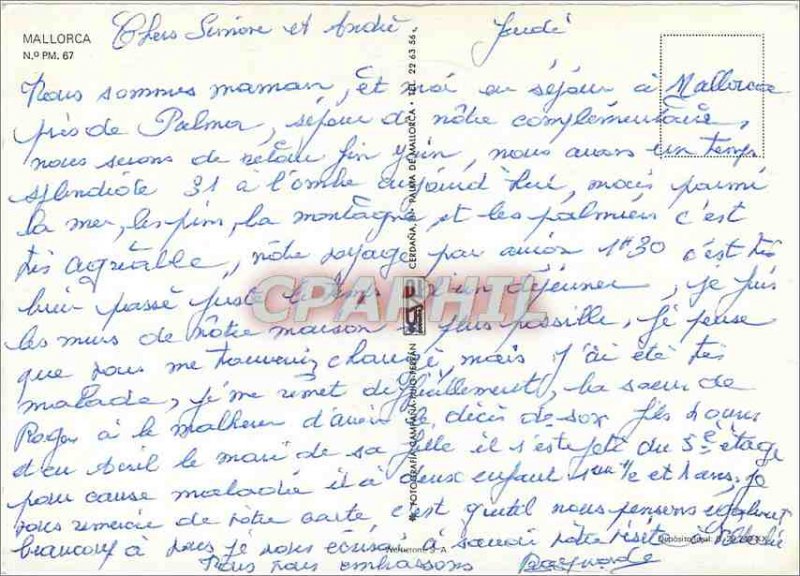 MALLORCA
N.º PM. 67
Chers Simone et André
Jeudi
Nous sommes maman, et moi en séjour à Mallorca
près de Palma, séjour de nôtre complémentaire,
nous serons de retour fin juin, nous avons un temps
splendide 31 à l'ombre aujourd'hui, mais parmi
la mer, les pins, la montagne, et les palmiers c'est
très agréable, nôtre voyage par avion 1h30 c'est très
bien passé juste le temps d'un déjeuner, je fuis
les murs de nôtre maison le plus possible, je pense
que vous me trouverez changé, mais j'ai été très
malade, je me remet difficilement, la soeur de
Roger à le malheur d'avoir le décès de son fils
d'eu Avril le mari de sa fille il s'est jeté du 5e étage
pour cause maladie il à deux enfant et 1 ans, je
vous remercie de vôtre carte, c'est gentil nous pensons également
beaucoup à vous je vous à savoir vôtre visite à
Nous vous embrassons Raymonde
FOTOGRAFIA CAMPAÑA-PUIG FERRAN
CERDAÑA, PALMA DE MALLORCA • TEL. 22 63 56
CPARPHIL
Depósito legal: B.